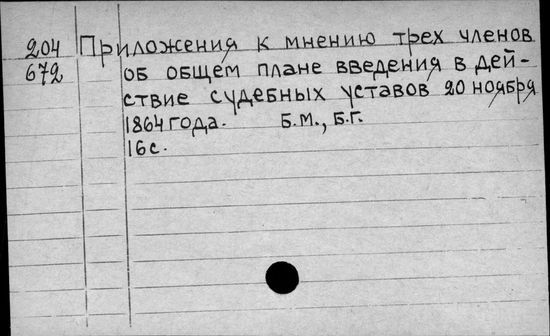 204 Приложения к мнению трех членов
672 об общем плане введения в дей-
ствие судебных уставов 20 ноября
1864 года. Б.М., Б.Г.
16 с.